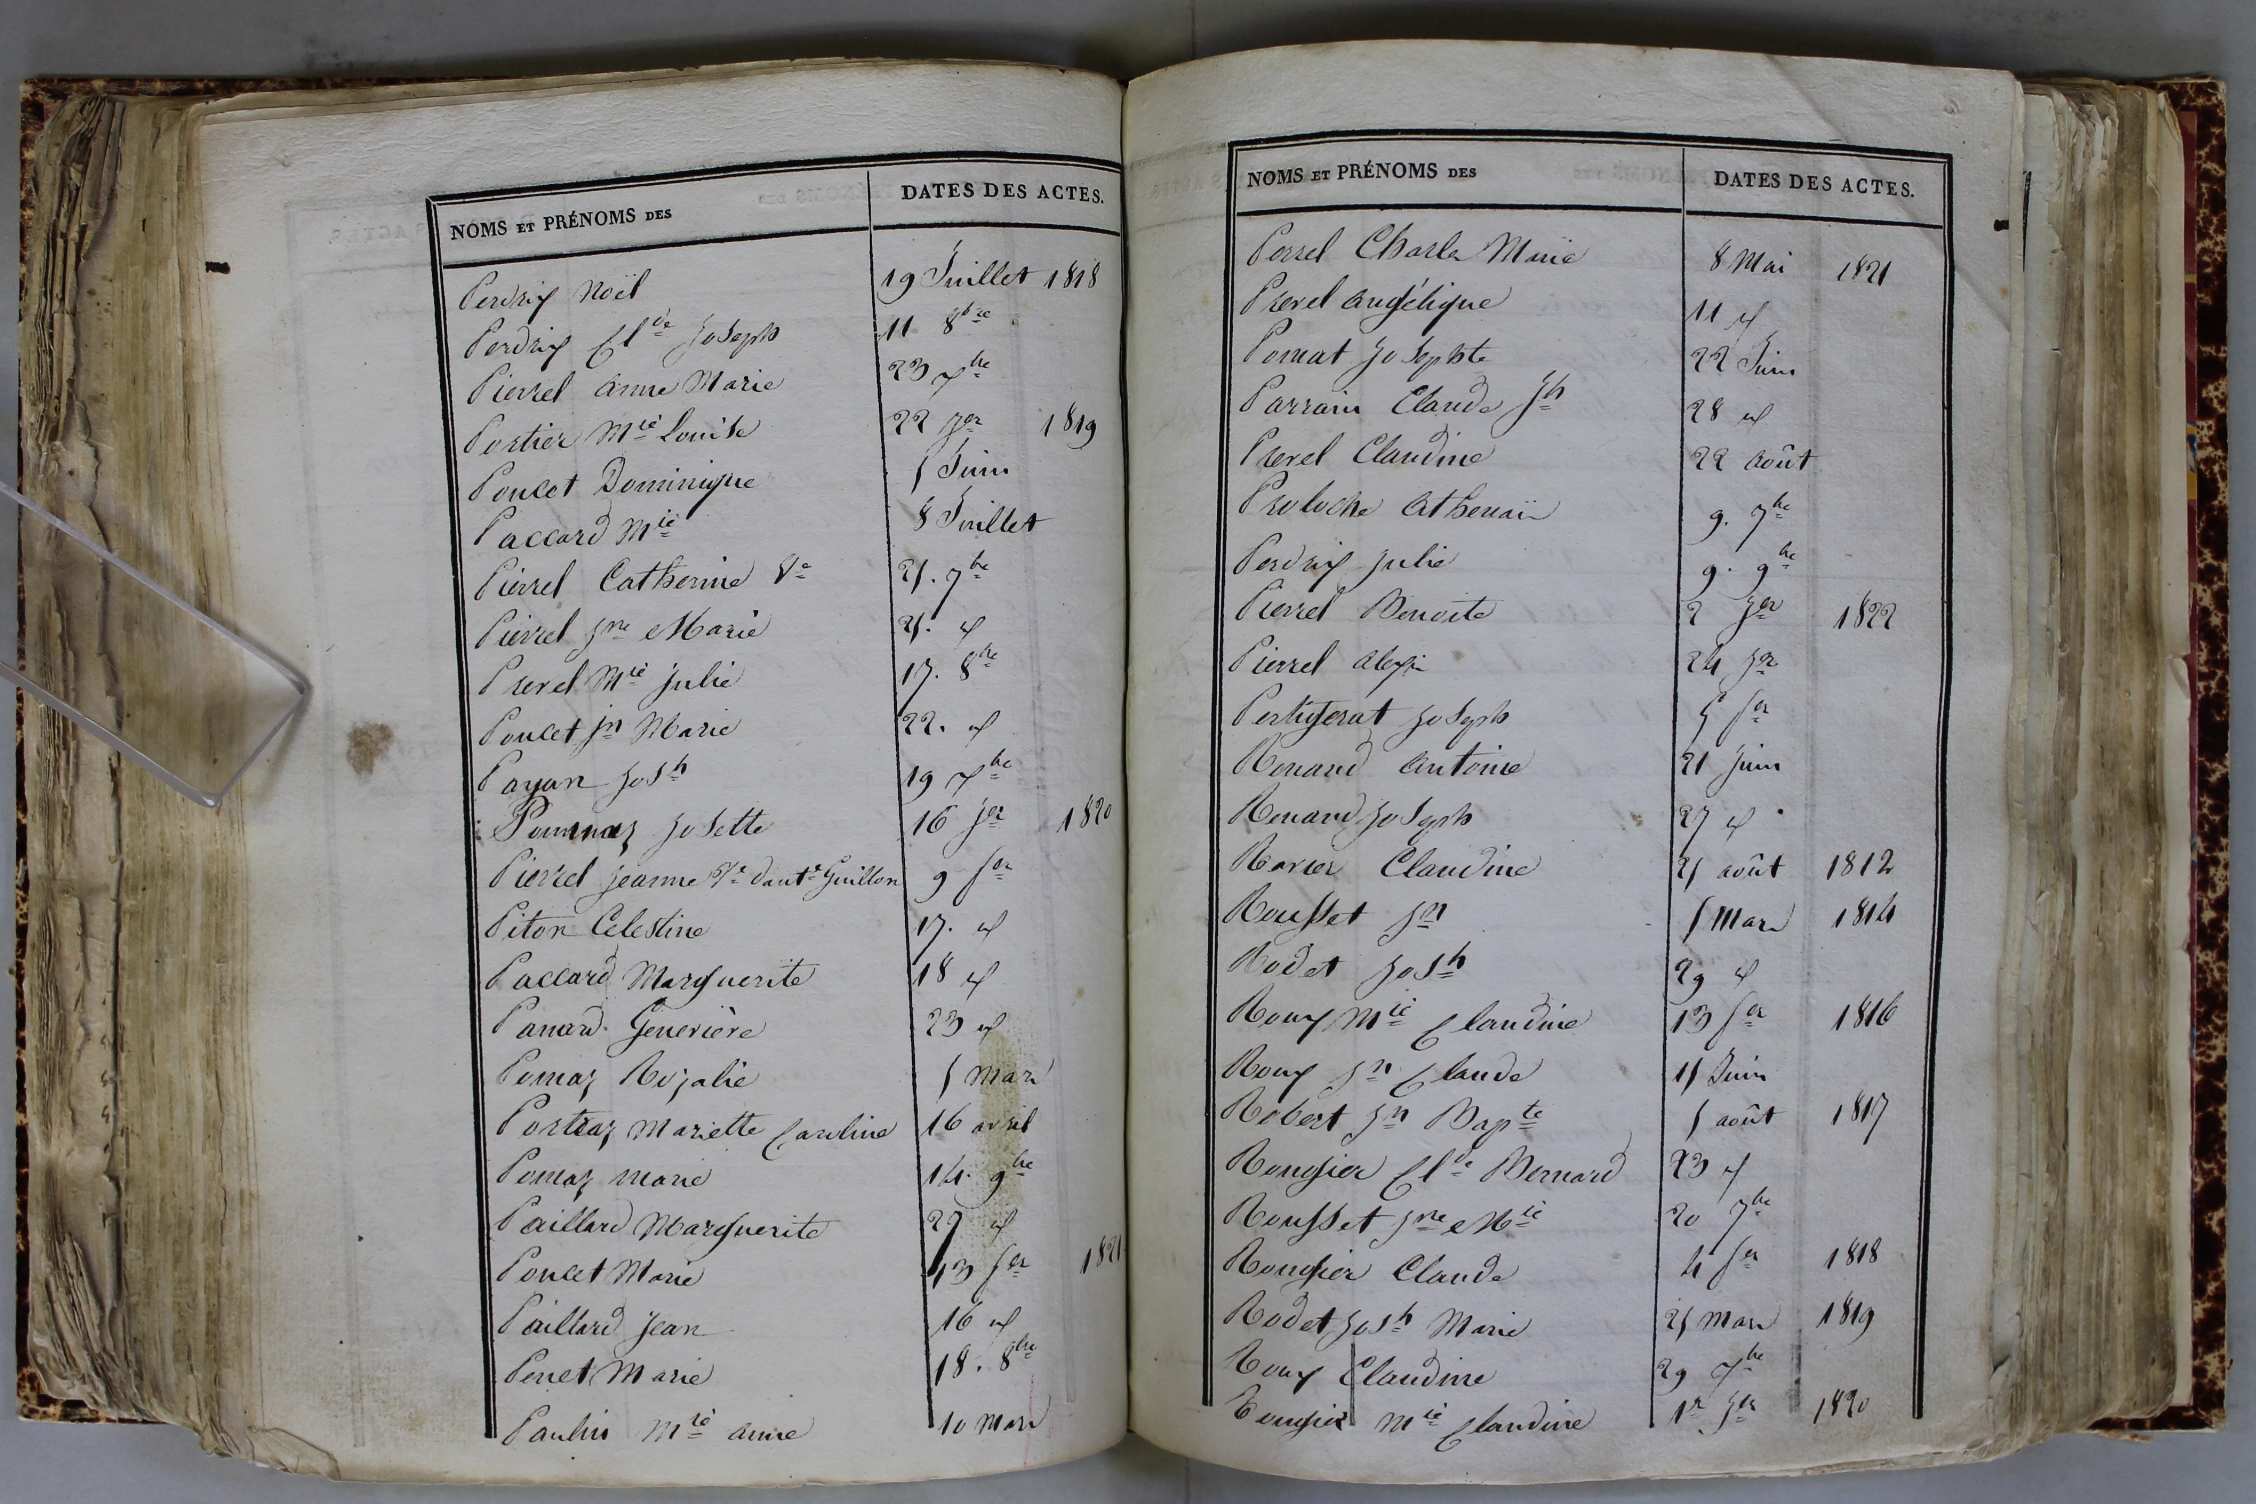 NOMS ET PRÉNOMS DES DATES DES ACTES.
Perdrix Noël 19 Juillet 1818
Perdrix Cl.de Joseph 11 8bre
Pierrel anne Marie 23 xbre
Portier Mie Louise 22 Jer 1819
Poncet Dominique 5 Juin
Paccard Mie 8 Juillet
Pierrel Catherine Ve 25. 7bre
Pierrel Jne Marie 25. d
Prevel Mie Julie 17. 8bre
Poncet Jn Marie 22. d
Payan Josh 19 xbre
Pommaz Josette 16 Jer 1820
Pierrel Jeanne Ve d'ant.e Guillon 9 fer
Piton Celestine 17. d
Paccard Marguerite 18 d
Panard Genevière 23 d
Pomaz Rozalie 5 Mars
Portraz Mariette Caroline 16 avril
Pomaz Marie 14. 9bre
Paillard Marguerite 27 d
Poncet Marie 13 fer 1821
Paillard Jean 16 d
Penet Marie 18. 8bre
Paulin Mie anne 10 Mars
NOMS ET PRÉNOMS DES DATES DES ACTES.
Perrel Charles Marie 8 Mai 1821
Prevel angélique 11 d
Pomat Josephte 22 Juin
Parrain Claude Jh 28 d
Prevel Claudine 22 août
9. 7bre
Perdrix Julie 9. 9bre
Pierrel Benoite 2 Jer 1822
Pierrel alexis 24 Jer
Joseph 5 fer
Renaud antoine 21 Juin
Renaud Joseph 27 d
Ravier Claudine 25 août 1812
Rousset Jn 5 Mars 1814
Rodet Josh 29 d
Roux Mie Claudine 13 fer 1816
Roux Jn Claude 15 Juin
Robert Jn Bapte 5 août 1817
Rougier Cl.de Bernard 23 d
Rousset Jne Mie 20 7bre
Rougier Claude 4 fer 1818
Rodet Josh Marie 25 Mars 1819
Roux Claudine 29 xbre
Rougier Mie Claudine 1er Jer 1820